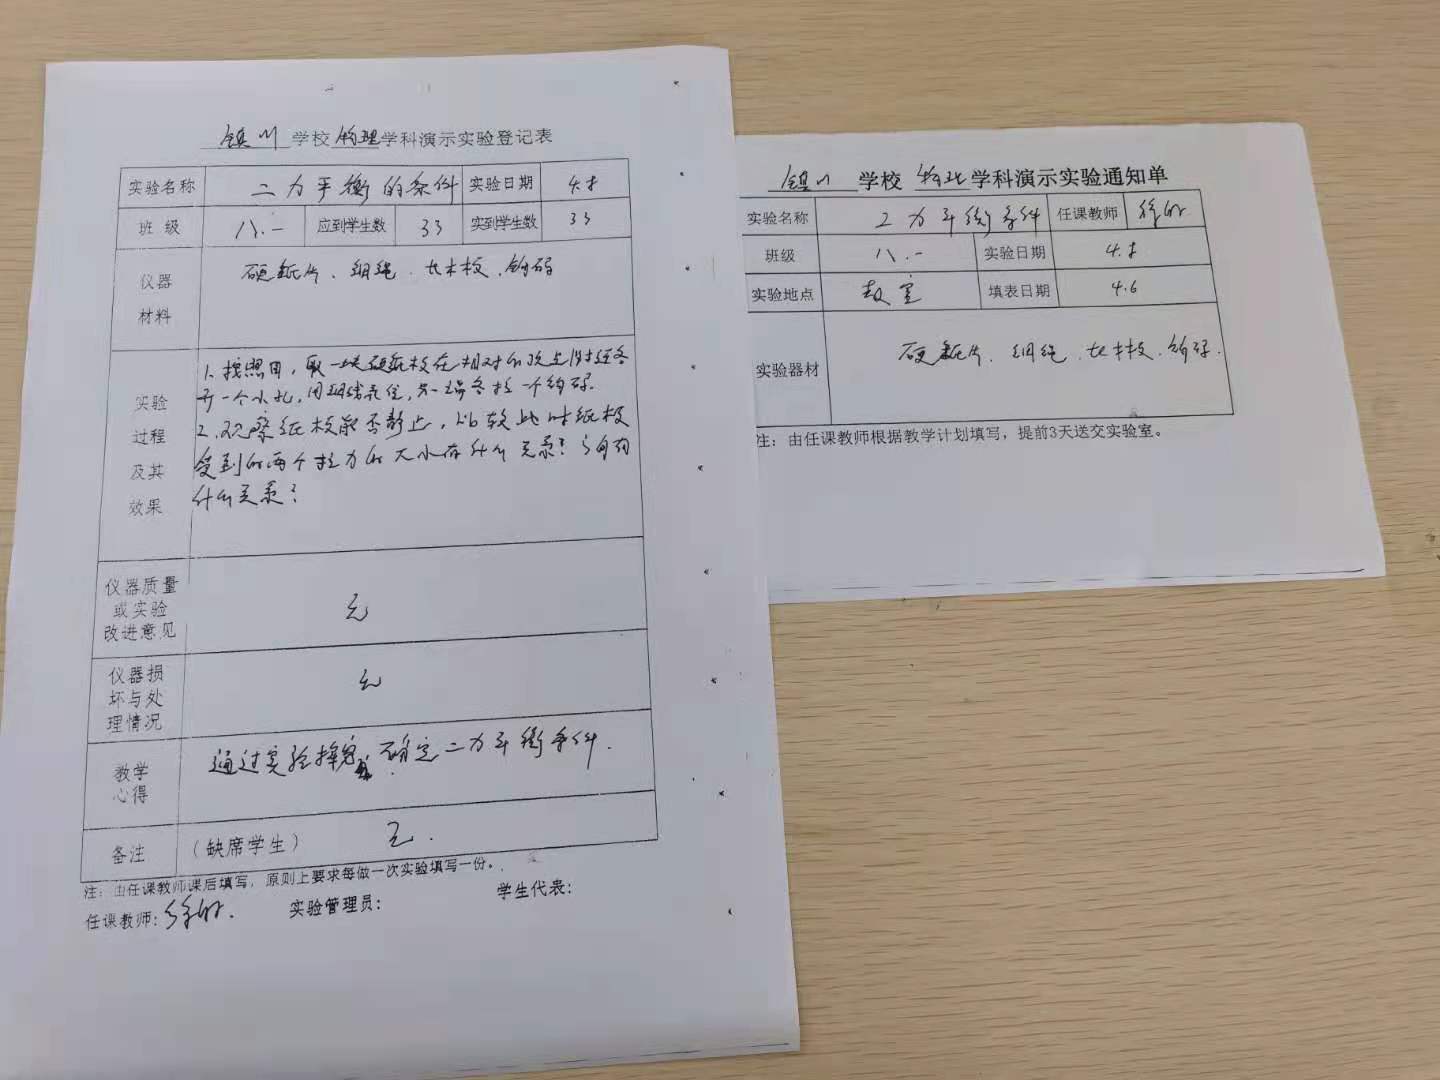 镇川 学校 物理 学科演示实验登记表
实验名称 二力平衡的条件 实验日期 4.8
班 级 八.一 应到学生数 33 实到学生数 33
仪器 材料 硬纸片、细绳、长木板、钩码
实验 过程 及其 效果
1、按照图，取一块硬纸板在相对的
开一个小孔，用细线系住，另一端各挂一个钩码。
2、观察纸板能否静止，比较此时纸板
受到的两个拉力的大小有什么关系？方向有
什么关系？
仪器质量 或实验 改进意见 无
仪器损 坏与处 理情况 无
教学 心得 通过实验探究，确定二力平衡条件.
备注 （缺席学生） 无.
注：由任课教师课后填写，原则上要求每做一次实验填写一份。
任课教师: 实验管理员: 学生代表:
镇川 学校 物理 学科演示实验通知单
实验名称 二力平衡条件 任课教师
班级 八.一 实验日期 4.8
实验地点 教室 填表日期 4.6
实验器材 硬纸片、细绳、长木板、钩码.
注：由任课教师根据教学计划填写，提前3天送交实验室。